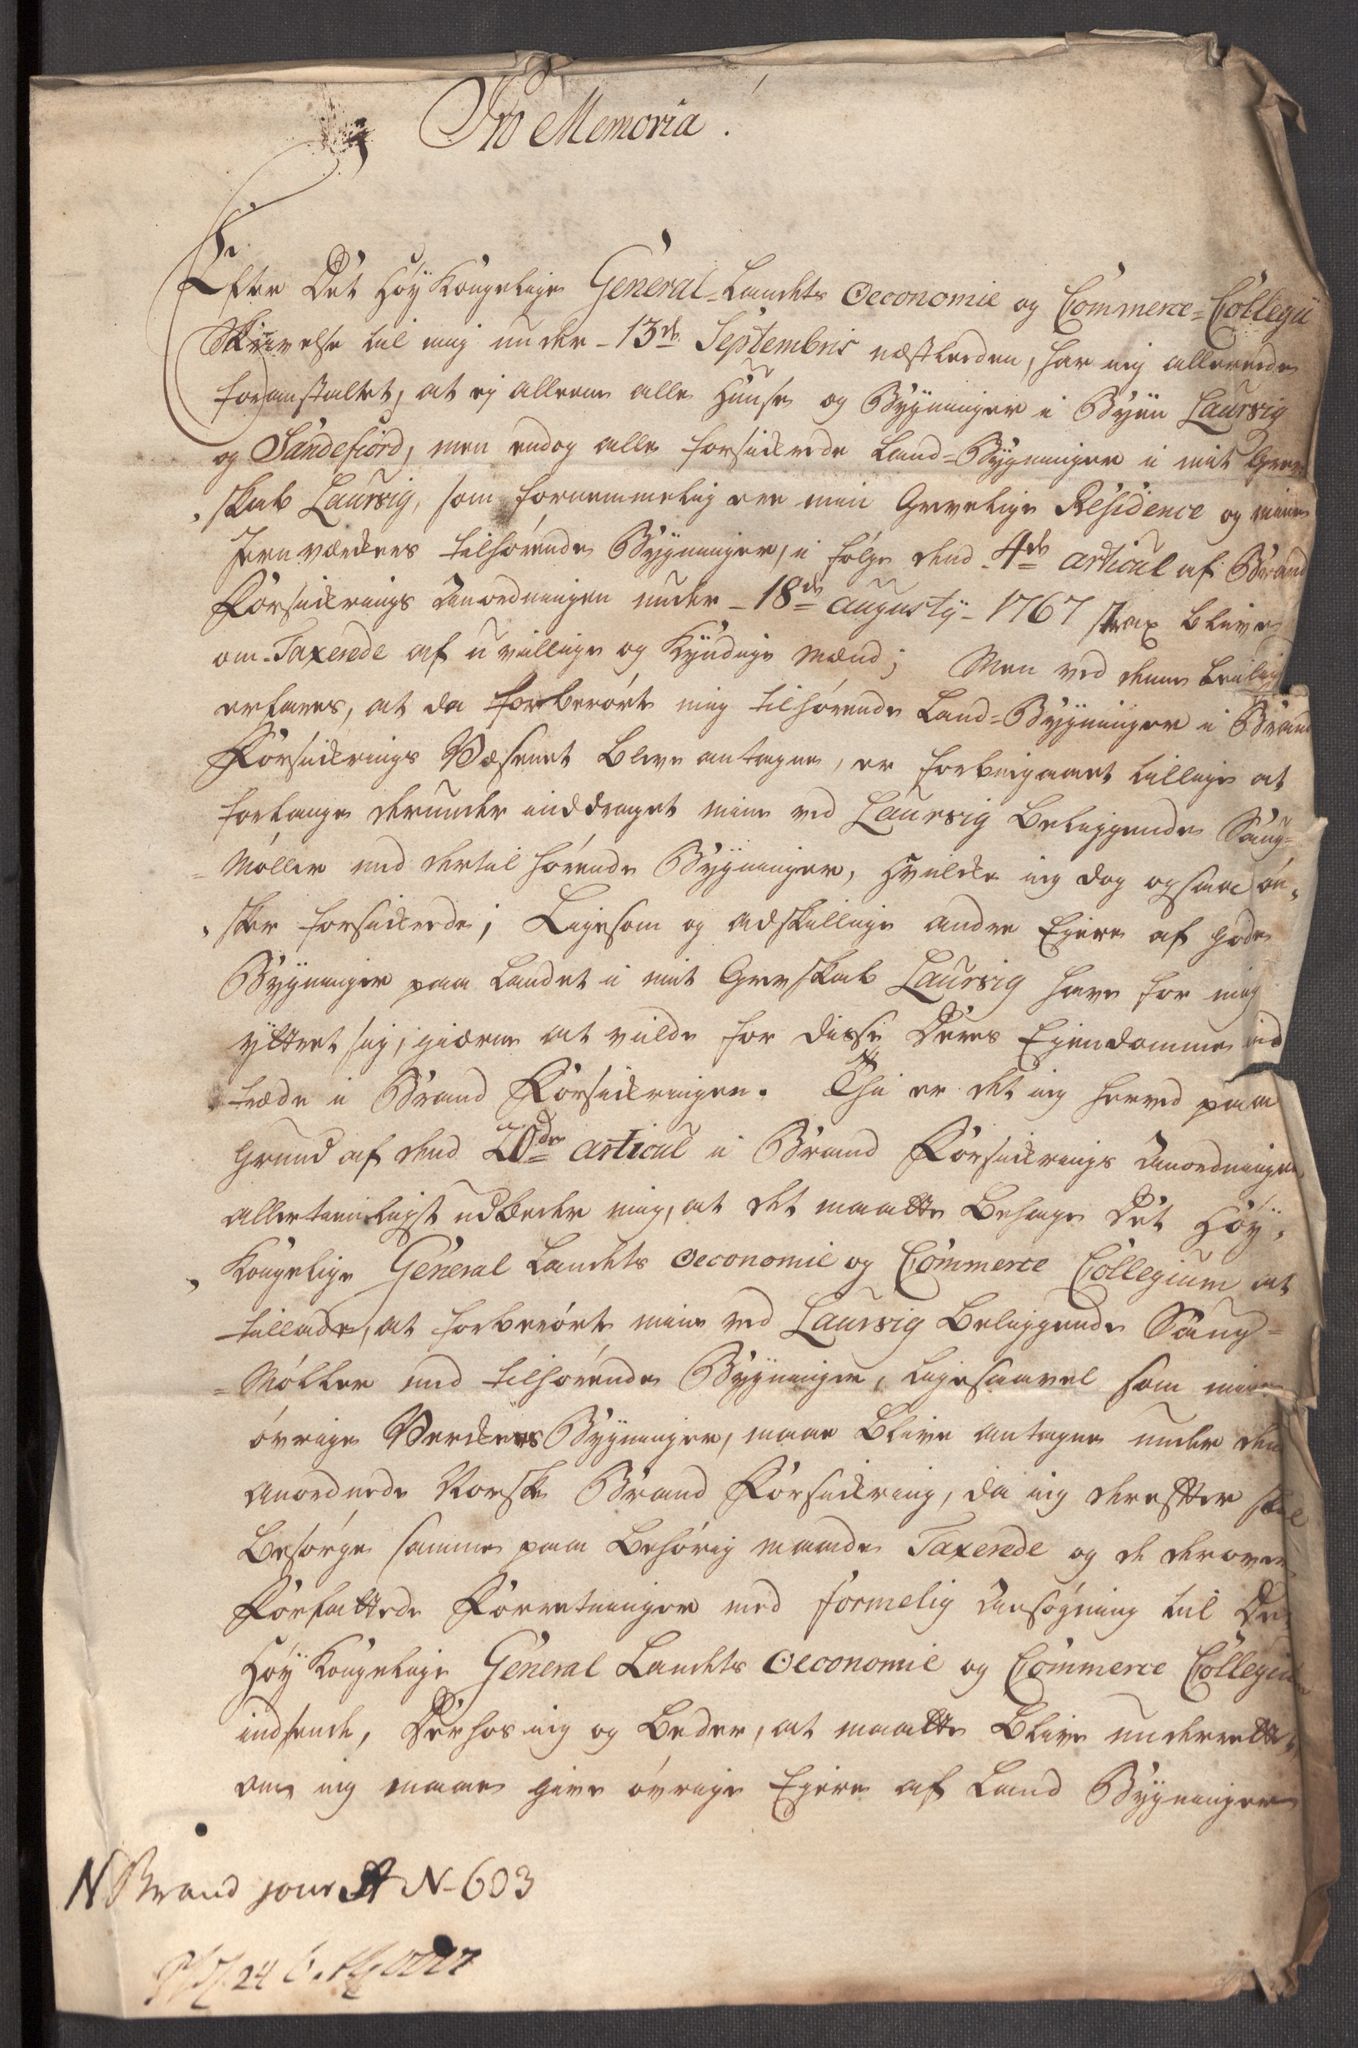 Pro Memoria.
Efter Det Høy Kongelige General-Landets Oeconomie og Commerce-Collegii
Skrivelse til mig under 13de Septembris næstleeden, har jeg allereede
foranstaltet, at ej alleene alle Huuse og Bygninger i Byen Laurvig
og Sandefiord, men endog alle forsikrede Land-Bygninger i mit Grev-
skab Laurvig, som fornemmelig ere min Grevelige Residence og mine
Jernværckers tilhørende Bygninger, i følge dend 4de articul af Brand
Forsikrings Anordningen under 18de augusty 1767 strax blive
om-Taxerede af uvillige og Kyndige Mænd; Men ved denne Leilig
erfares, at da forberørte mig tilhørende Land-Bygninger i Brand
Forsikrings Væsenet bleve antagne, er forbeigaaet tillige at
forlange derunder inddraget mine ved Laurvig beliggende Saug-
Møller med dertil hørende Bygninger, hvilcke jeg dog ogsaa øn-
sker forsikrede; Ligesom og adskillige andre Ejere af gode
Bygninger paa Landet i mit Grevskab Laurvig have for mig
yttret sig, gierne at vilde for disse Deres Ejendomme ind
træde i Brand Forsikringen. Thi er det jeg herved paa
Grund af dend 20de articul i Brand Forsikrings Anordningen
allertienligst udbeder mig, at det maatte behage Det Høy-
Kongelige General Landets Oeconomie og Commerce Collegium at
tillade, at forberørte mine ved Laurvig beliggende Saug-
Møller med tilhørende Bygninger, ligesaavel som mine
øvrige Werckers Bygninger, maae blive antagne under den
anordnede Norske Brand Forsikring, da jeg derefter skal
besørge samme paa behørig maade Taxerede og de derover
Forfattede Forretninger med formelig Ansøgning til Det
Høy Kongelige General Landets Oeconomie og Commerce Collegium
indsende, Derhos jeg og beder, at maatte blive underrettet,
om jeg maae give øvrige Ejere af Land Bygninger
N Brand jour A N-603